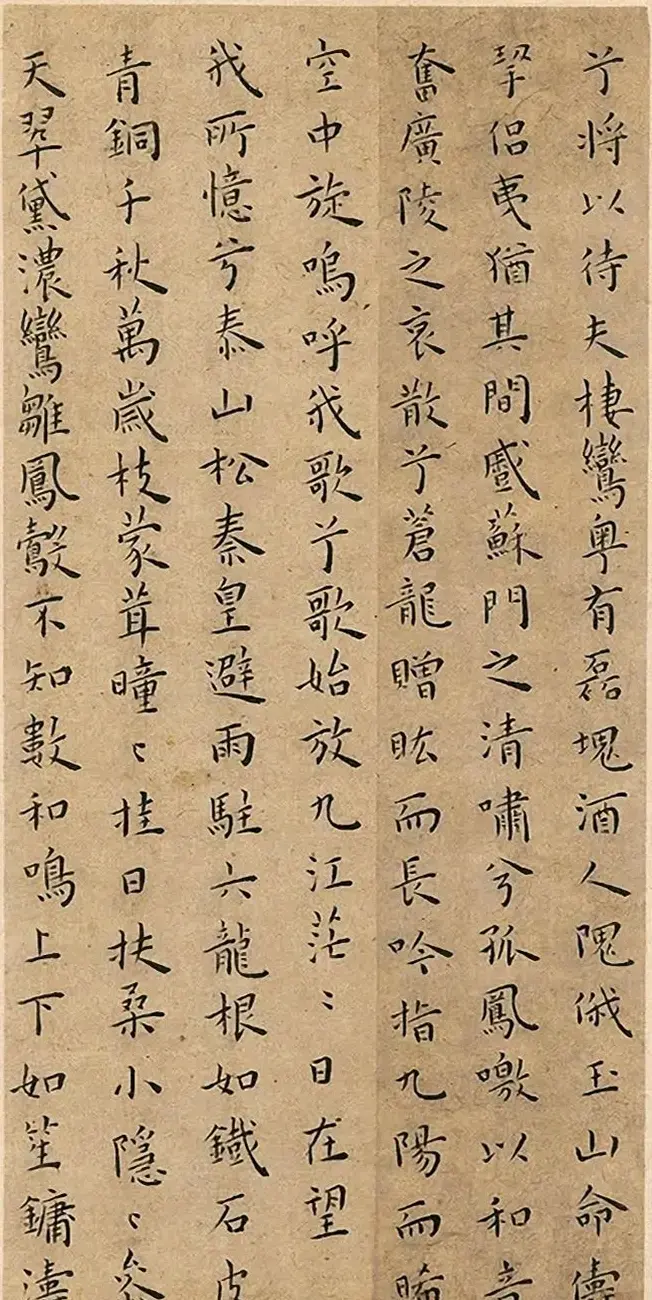 兮將以待夫棲鸞粵有磊塊酒人隗俄玉山命儔
挈侶夷猶其間感蘇門之清嘯兮孤鳳噭以和音
奮廣陵之哀散兮蒼龍贈眩而長吟指九陽而晞
空中旋嗚呼我歌兮歌始放九江茫〻日在望
我所憶兮泰山松秦皇避雨駐六龍根如鐵石皮
青銅千秋萬歲枝蒙茸曈〻挂日扶桑小隱〻
天翠黛濃鸞雛鳳鷇不知數和鳴上下如笙鏞濤